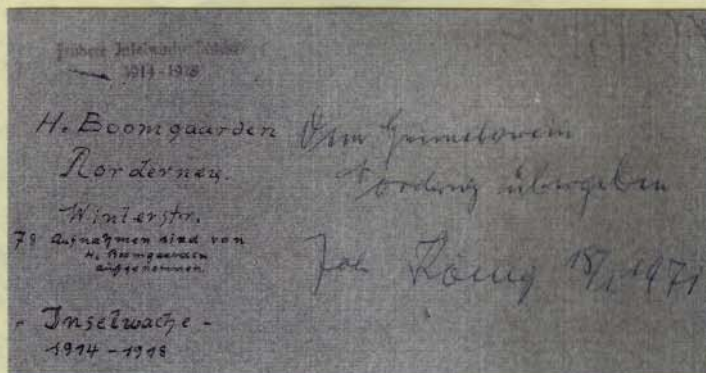 1914-1918
H. Boomgaarden
Norderney.
Winterstr.
78 Aufnahmen sind von
H. Boomgaarden
aufgenommen.
- Inselwache -
1914-1918
Dem Heimatverein
Norderney übergeben
Joh König 1971